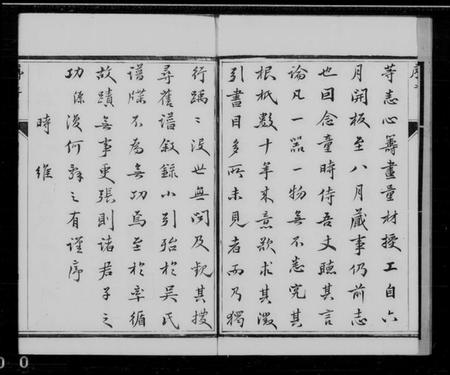 等悉心籌畫量材授工自六
月開板至八月蕆事仍前志
也回念童時侍吾丈聽其言
論凡一器一物無不悉究其
根柢數十年來意欲求其澂
引書目多所未見者而乃獨
行踽〻沒世無聞及觀其搜
尋舊譜敘錄小引殆於吳氏
譜牒不為無功焉至於率循
故蹟無事更張則諸君子之
功源深何辭之有謹序
時維
00